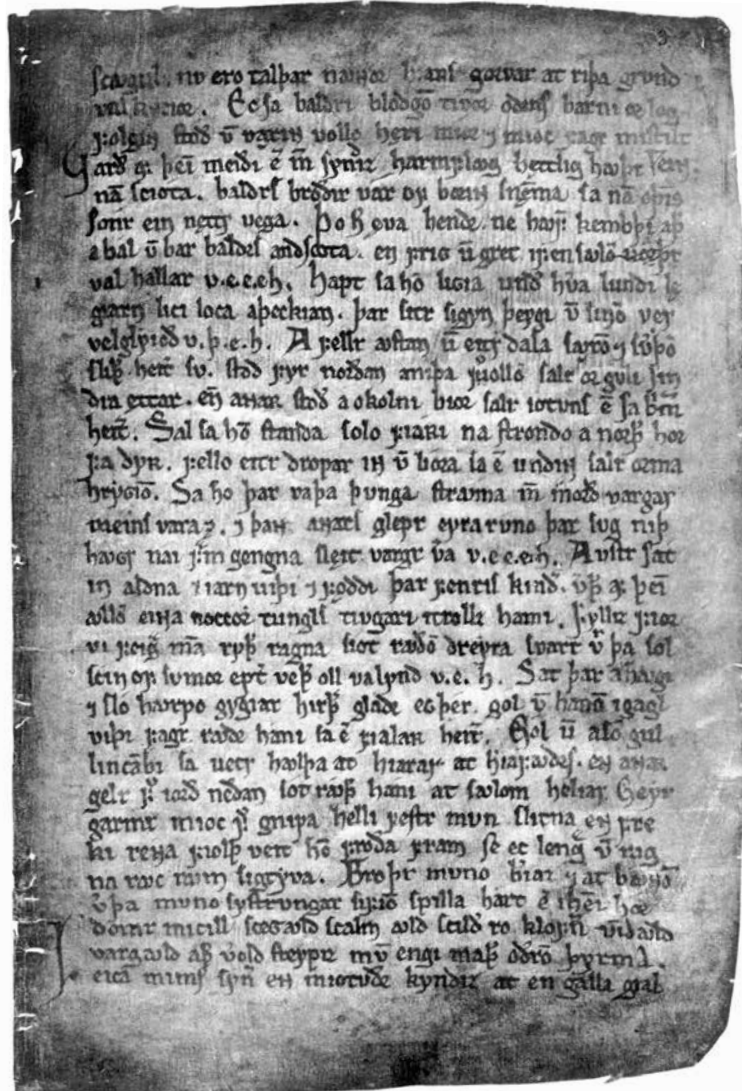 scaugul. nv ero talþar naɴoꝛ herians goꝛvar at riþa grvnd
valkyrioꝛ. Ec sa baldri blóðgō tívoꝛ oðins barni ꝍꝛlog
ꝼolgin stóð v̄ vaxiɴ vollo hęri mioꝛ ⁊ mioc ꝼagr mistilt
arð aꝼ þei meiði ē m̄ syndiz harmꝼlꜹg hettlig hꜹþr
nā scióta. baldrs broðir var oꝼ boꝛiɴ snēma sa nā oþins
sonr ein nettr vega. Þo h̄ ęva hendr ne hꜹꝼuþ kembþi aþ
a bal v̄ bar baldrs andscota. en ꝼrig v̄ gret
val hallar v.e.e.eh. Hapt sa hō licia undr hvera lundi lę
giarn lici loca aþeckian. þar sitr sigyn þeygi v̄ sinō ver
velglyioð v.þ.e.h. A ꝼellr ꜹstan v̄ eitr dala sꜹxō ⁊ sverþō
sliþr heit̄ sv. stóð ꝼyr noꝛðan aniþa vollō salr oꝛ gvlli sin
dra ęttar. en aɴaʀ stóð a okolni bioꝛ salr iotuns ē sa brimir
heit̄. Sal sa hō standa solo ꝼiaʀi na strondo a noꝛþr hoꝛ
ꝼa dyʀ. ꝼello eitr dropar iɴ v̄ lióꝛa sa ē undiɴ salr oꝛma
hrygiō. Sa hō þar vaþa þunga strauma m̄n meinsvara
⁊ þaɴ aɴars glepr eyra rúno þar sug niþ
hꜹgr nai ꝼ gengna sleit vargr v̄a v.e.e.eh. Austr sat
in aldna i iarn viþi ⁊ ꝼǫddi þar ꝼenris kindir. v̄þr aꝼ þei
ꜹllō eiɴa noccoꝛ tungls tiugari i trollz hami. Fylliz ꝼioꝛ
vi ꝼeigra māna ryþr ragna siot rꜹðō dreyra svart v̄ þa sol
scin oꝼ sumoꝛ ept̄ veþr oll valynd v.e.h. Sat þar a hꜹgi
⁊ slo hoꝛpo gygiar hirþir glaðr egþer. gol v̄ hanō i gagl
viþi ꝼagr rꜹðr hani sa ē ꝼialaʀ heit̄. Gol v̄ asō gul
lincābi sa vecr hꜹlþa at heriaꝼꜹðrs. en aɴaʀ
gelr ꝼ ioꝛð neðan sot rꜹþr hani at sꜹlom heliar. Geyr
garmr mioc ꝼ gnipa helli ꝼestr mun slitna en ꝼre
ki reɴa ꝼiolþ veit hō ꝼrǫða ꝼram se ec lengra v̄ rag
na rꜹc rꜹm sigtyva. Broþr muno beriaz ⁊ at bꜹnō
v̄þa muno systrungar siꝼiō spilla hart ē i hei hoꝛ
dómr micill sceggꜹld scalm ꜹld scildir ro kloꝼnir vindꜹld
vargꜹld aþr v̄old steypiz mvn engi maþr oðrō þyrma.
Leica mims synir en miotuðr kyndiz at en galla gial